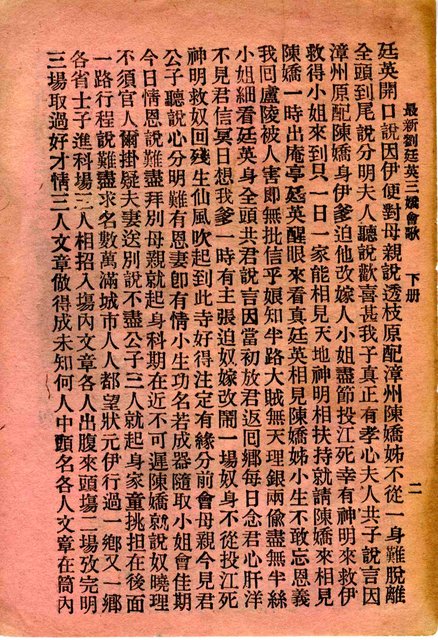 最新劉廷英三嬌會歌　下册
二
廷英開口說因伊便對母親說透枝原配漳州陳嬌姊不從一身難脫離
全頭到尾說分明夫人聽說歡喜甚我子真正有孝心夫人共子說言因
漳州原配陳嬌身伊爹迫他改嫁人小姐盡節投江死幸有神明來救伊
救得小姐來到只一日一家能相見天地神明相扶持就請陳嬌來相見
陳嬌一時出庵亭廷英醒眼來看真廷英相見陳嬌姊小生不敢忘恩義
我回盧陵被人害即無批信乎娘知半路大賊無天理銀兩偷盡無半絲
小姐細看廷英身全頭共君說言因當初放君返回鄉每日念君心肝洋
不見君信冥日想我爹一時有主張迫奴嫁改鬧一場奴身不從投江死
神明救奴回殘生仙風吹起到此寺好得注定有緣分前會母親今見君
公子聽說心分明難有恩妻卽有情小生功名若成器隨取小姐會佳期
今日情恩說難盡拜別母親就起身科期在近不可遲陳嬌就說奴曉理
不須官人爾掛疑夫妻送別說不盡公子三人就起身家童挑担在後面
一路行程說難盡求名數萬滿城市人人都望狀元伊行過一鄉又一鄉
各省士子進科場三人相招入塲內文章各人出腹來頭塲二塲攷完明
三場取過好才情三人文章做得成未知何人中頭名各人文章在筒內